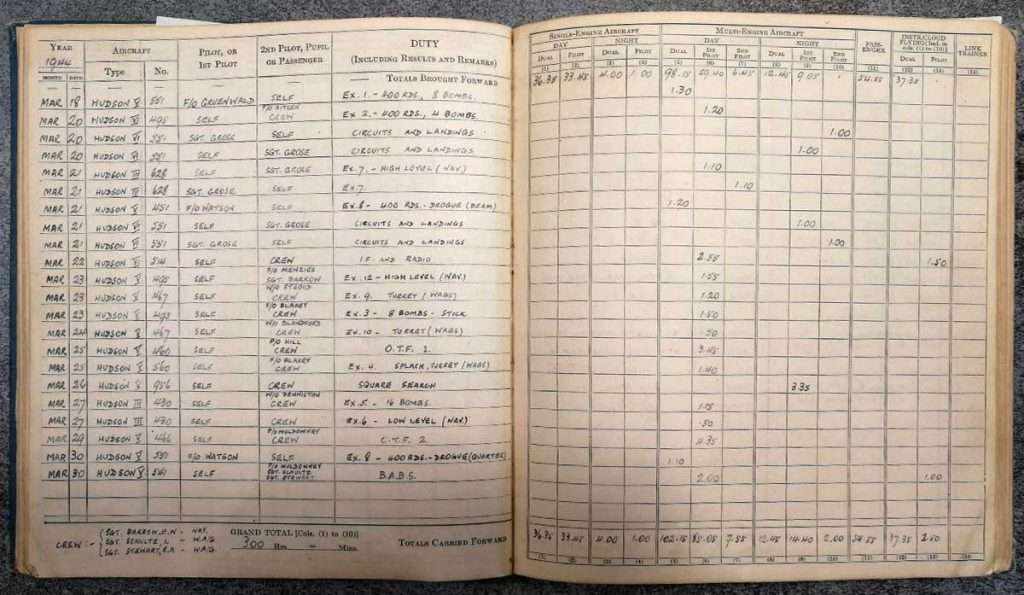 YEAR AIRCRAFT PILOT, OR 1ST PILOT 2ND PILOT, PUPIL OR PASSENGER DUTY (INCLUDING RESULTS AND REMARKS)
1944
MONTH DATE Type No.
TOTALS BROUGHT FORWARD
MAR 18 HUDSON 551 F/O GRUENWALD SELF EX. 1. - 400 RDS., 8 BOMBS.
MAR 20 HUDSON CREW SELF EX 2. - 400 RDS., 4 BOMBS.
MAR 20 HUDSON VI 551 SGT. GROSE SELF CIRCUITS AND LANDINGS
MAR 20 HUDSON VI 551 SELF SGT. GROSE CIRCUITS AND LANDINGS
MAR 21 HUDSON III 628 SELF SGT. GROSE EX. 7. - HIGH LEVEL (NAV.)
MAR 21 HUDSON III 628 SGT. GROSE SELF EX.7.
MAR 21 HUDSON V 451 F/O WATSON SELF EX.8 - 400 RDS. - DROGUE (BEAM)
MAR 21 HUDSON 551 SELF SGT. GROSE CIRCUITS AND LANDINGS
MAR 21 HUDSON 551 SGT. GROSE SELF CIRCUITS AND LANDINGS
MAR 22 HUDSON SELF CREW I.F. AND RADIO
MAR 23 HUDSON SELF F/O MENZIES SGT. BARROW EX. 12 - HIGH LEVEL (NAV.)
MAR 23 HUDSON V 467 SELF CREW EX. 9. TURRET (WAGS)
MAR 23 HUDSON SELF CREW EX. 3 - 8 BOMBS - STICK
MAR 24 HUDSON V 467 SELF W/O BLANDFORD CREW EX. 10. - TURRET (WAGS)
MAR 25 HUDSON V SELF P/O HILL CREW O.T.F. 1.
MAR 25 HUDSON V 560 SELF CREW EX. 4. SPLASH, TURRET (WAGS)
MAR 26 HUDSON V 956 SELF CREW SQUARE SEARCH
MAR 27 HUDSON III 430 SELF W/O DENNISTON CREW EX. 5. - 16 BOMBS.
MAR 27 HUDSON III 430 SELF CREW EX. 6 - LOW LEVEL (NAV.)
MAR 29 HUDSON V 466 SELF CREW O.T.F. 2
MAR 30 HUDSON V F/O WATSON SELF EX. 8 - 400 RDS. - DROGUE (QUARTER)
MAR 30 HUDSON V SELF SGT. SCHULTZ SGT. STEWART B.A.B.S.
CREW :- SGT. BARROW NAV.
SGT. SCHULTZ, L - W.A.G.
SGT. STEWART - W.A.G.
GRAND TOTAL [Cols. (1) to (10)]
300 Hrs. Mins.
TOTALS CARRIED FORWARD
SINGLE-ENGINE AIRCRAFT MULTI-ENGINE AIRCRAFT PASSENGER INSTR/CLOUD FLYING [Incl. in cols. (1) to (10)] LINK TRAINER
DAY NIGHT DAY NIGHT
DUAL PILOT DUAL PILOT DUAL 1ST PILOT 2ND PILOT DUAL 1ST PILOT 2ND PILOT DUAL PILOT
(1) (2) (3) (4) (5) (6) (7) (8) (9) (10) (11) (12) (13) (14)
36.35 33.45 4.00 1.00 98.15 59.40 6.45 12.45 9.05 54.55 37.35
1.30
1.20
1.00
1.00
1.10
1.10
1.20
1.00
1.00
2.55 1.50
1.55
1.20
1.50
.50
3.45
1.40
3.35
1.15
.50
4.35
1.10
2.00 1.00
36.35 33.45 4.00 1.00 102.15 85.05 7.55 12.45 14.40 2.00 54.55 37.35 2.50
(1) (2) (3) (4) (5) (6) (7) (8) (9) (10) (11) (12) (13) (14)